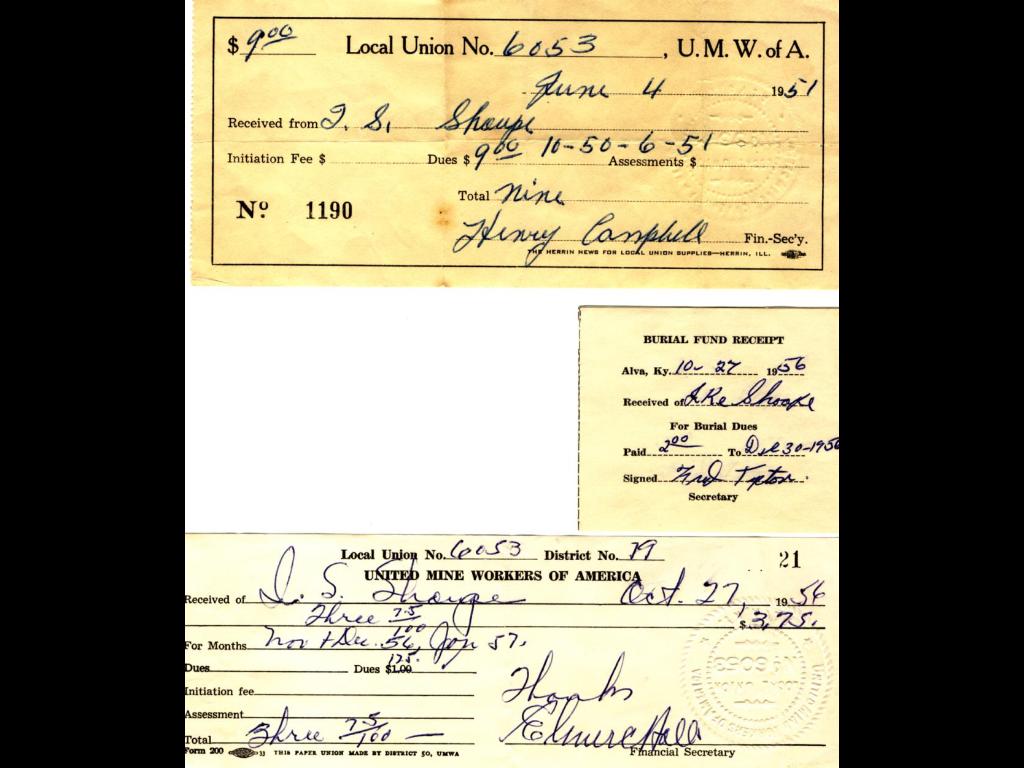 $ 9.00 Local Union No. 6053, U. M. W. of A.
June 4 1951
Received from I. S. Shoupe
Initiation Fee $ Dues $ 9.00 10-50-6-51 Assessments $
Total Nine
No 1190
Henry Campbell Fin.-Sec'y.
THE HERRIN NEWS FOR LOCAL UNION SUPPLIES—HERRIN, ILL.
BURIAL FUND RECEIPT
Alva, Ky. 10-27 1956
Received of Ike Shoope
For Burial Dues
Paid 2.00 To Dec 30-1956
Signed Fred Tipton
Secretary
Local Union No. 6053 District No. 19 21
UNITED MINE WORKERS OF AMERICA
Received of I. S. Shoupe Oct. 27, 1956
Three 75/100 $3.75.
For Months Nov + Dec. 56, Jan 57.
Dues Dues $1.00 1.25.
Initiation fee
Assessment Thanks
Total Three 75/100 — Elmire Hall
Form 200 33 THIS PAPER UNION MADE BY DISTRICT 50, UMWA Financial Secretary